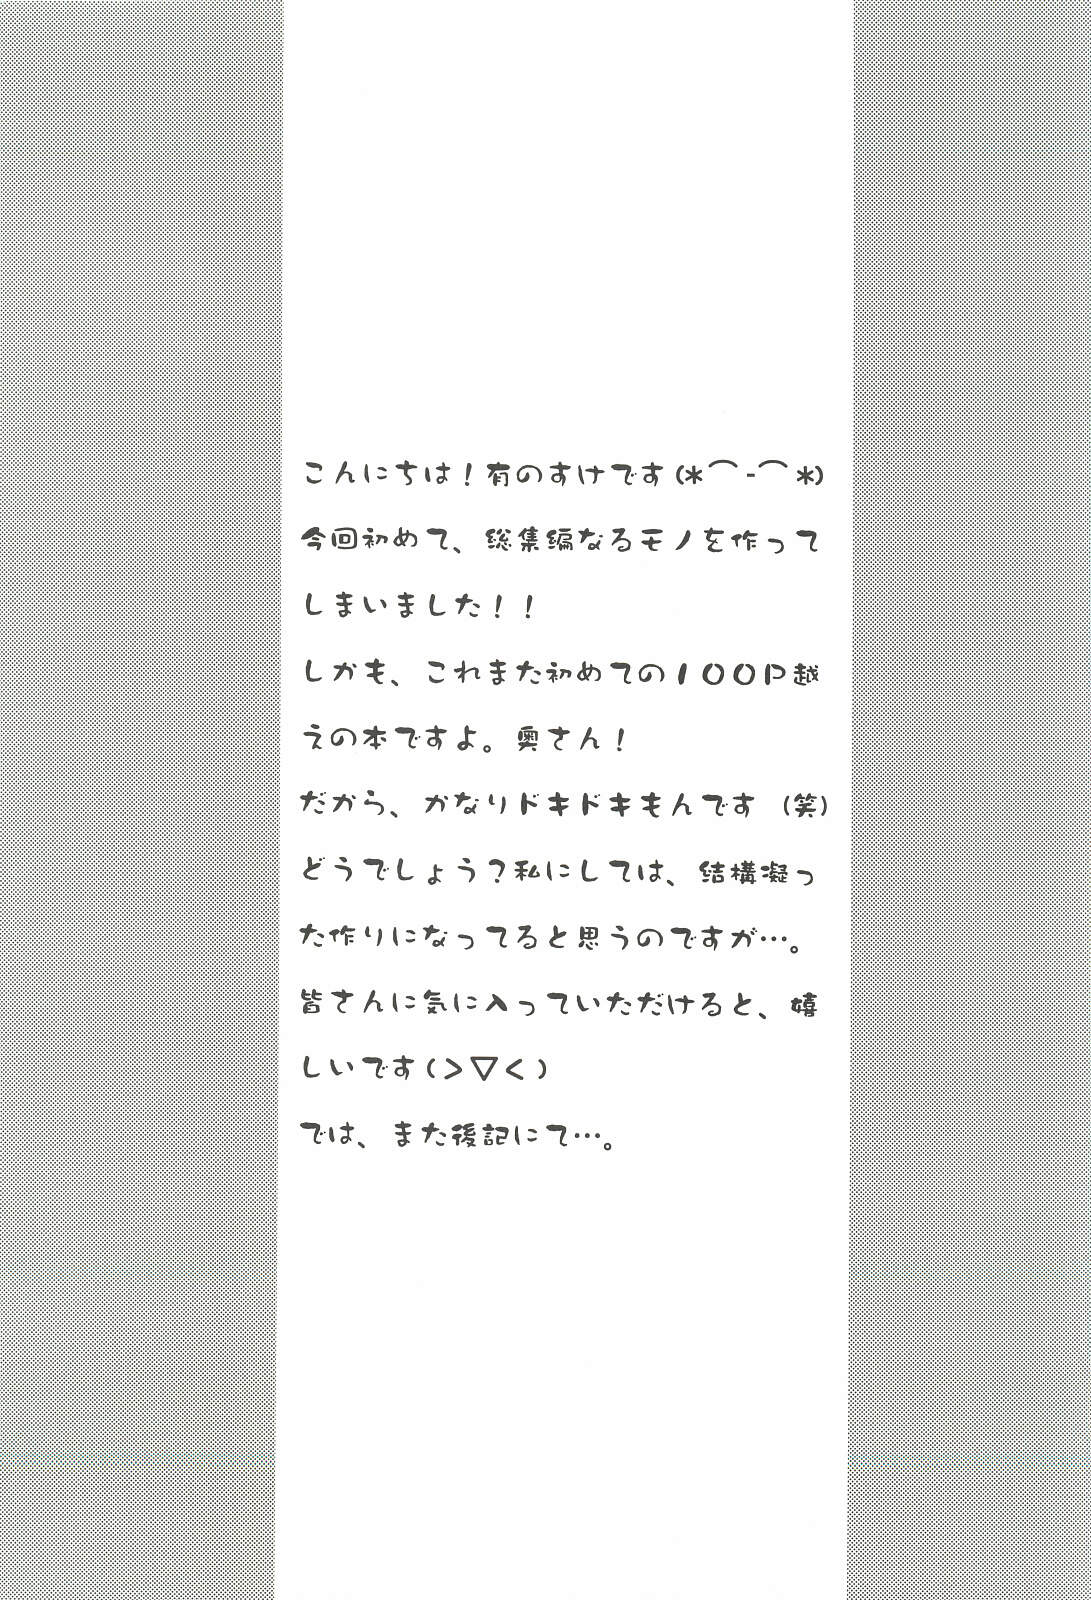 こんにちは！有のすけです(*⌒-⌒*)
今回初めて、総集編なるモノを作って
しまいました！！
しかも、これまた初めての１００Ｐ越
えの本ですよ。奥さん！
だから、かなりドキドキもんです（笑）
どうでしょう？私にしては、結構凝っ
た作りになってると思うのですが…。
皆さんに気に入っていただけると、嬉
しいです(＞▽＜)
では、また後記にて…。